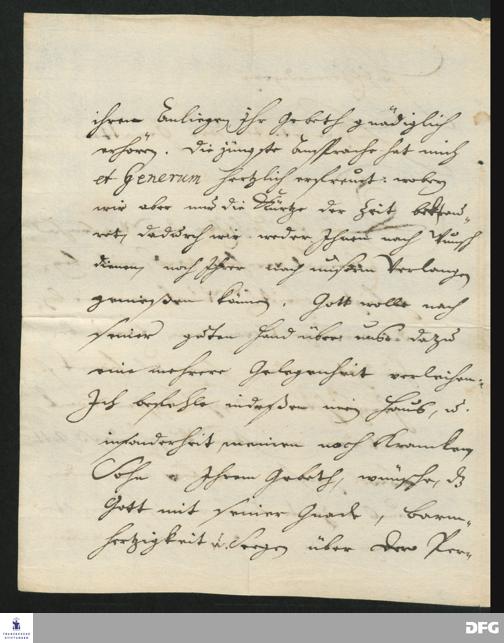 ihrem Anliegen Ihr Gebeth gnädiglich
erhören. Die jüngste Ansprache hat mich
et Generum hertzlich erfreuet: wobey
wir aber nur die Kürtze der Zeit betrau-
ret, dadurch wir weder Ihnen nach Wunsch
dienen, noch Ihrer nach unserm Verlangen
genießen können. Gott wolle nach
seiner guten Hand über uns dazu
eine mehrere Gelegenheit verleihen.
Ich befehle indeßen mein Hauß, u.
insonderheit meinen noch Krancken
Sohn Ihrem Gebeth, wünsche, dz
Gott mit seiner Gnade, Barm-
hertzigkeit u. Seegen über Dero Per-
FRANCKESCHE
STIFTUNGEN
DFG